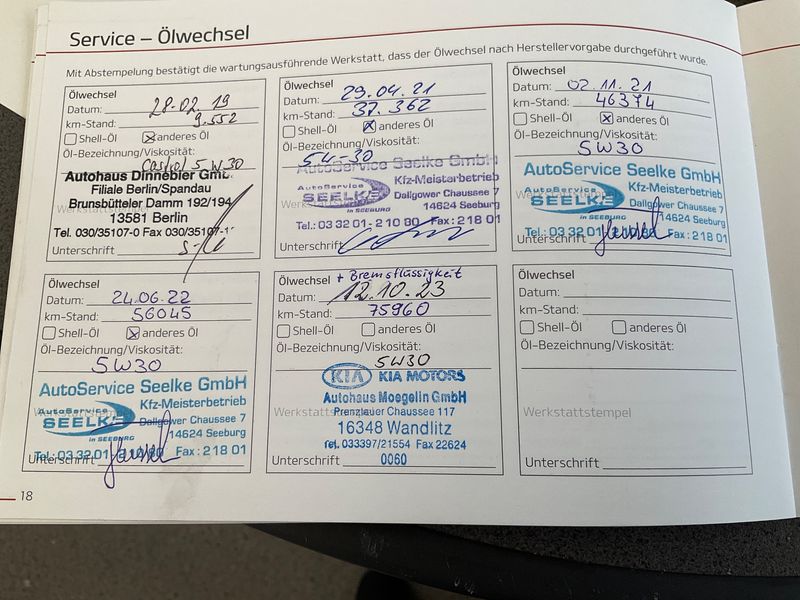 Service – Ölwechsel
Mit Abstempelung bestätigt die wartungsausführende Werkstatt, dass der Ölwechsel nach Herstellervorgabe durchgeführt wurde.
Ölwechsel
Datum: 28.02.19
km-Stand: 9.552
Shell-Öl anderes Öl
Öl-Bezeichnung/Viskosität:
Castrol 5W30
Autohaus Dinnebier GmbH
Filiale Berlin/Spandau
Brunsbütteler Damm 192/194
13581 Berlin
Tel. 030/35107-0 Fax 030/35107-1
Unterschrift
Ölwechsel
Datum: 29.04.21
km-Stand: 37.362
Shell-Öl anderes Öl
Öl-Bezeichnung/Viskosität:
5W-30
AutoService Seelke GmbH
AutoService Kfz-Meisterbetrieb
SEELKE Dallgower Chaussee 7
in SEEBURG 14624 Seeburg
Tel.: 03 32 01 - 2 10 80 Fax: 2 18 01
Unterschrift
Ölwechsel
Datum: 02.11.21
km-Stand: 46374
Shell-Öl anderes Öl
Öl-Bezeichnung/Viskosität:
5W30
AutoService Seelke GmbH
AutoService Kfz-Meisterbetrieb
SEELKE Dallgower Chaussee 7
in SEEBURG 14624 Seeburg
Tel.: 03 32 01 Fax: 2 18 01
Unterschrift
Ölwechsel
Datum: 24.06.22
km-Stand: 56045
Shell-Öl anderes Öl
Öl-Bezeichnung/Viskosität:
5W30
AutoService Seelke GmbH
AutoService Kfz-Meisterbetrieb
SEELKE Dallgower Chaussee 7
in SEEBURG 14624 Seeburg
Tel.: 03 32 01 Fax: 2 18 01
Unterschrift
Ölwechsel + Bremsflüssigkeit
Datum: 12.10.23
km-Stand: 75960
Shell-Öl anderes Öl
Öl-Bezeichnung/Viskosität:
5W30
KIA KIA MOTORS
Autohaus Moegelin GmbH
Prenzlauer Chaussee 117
16348 Wandlitz
Tel. 033397/21554 Fax 22624
Unterschrift 0060
Ölwechsel
Datum:
km-Stand:
Shell-Öl anderes Öl
Öl-Bezeichnung/Viskosität:
Werkstattstempel
Unterschrift
18